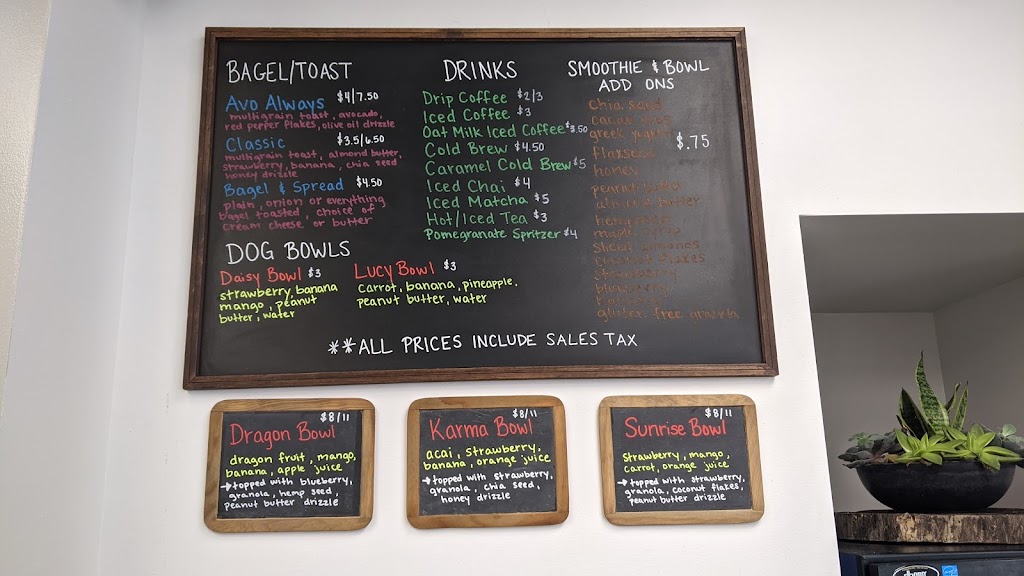 BAGEL/TOAST
Avo Always $4/7.50
multigrain toast, avocado,
red pepper flakes, olive oil drizzle
Classic $3.5/6.50
multigrain toast, almond butter,
strawberry, banana, chia seed
honey drizzle
Bagel & Spread $4.50
plain, onion or everything
bagel toasted, choice of
cream cheese or butter
DOG BOWLS
Daisy Bowl $3
strawberry, banana
mango, peanut
butter, water
Lucy Bowl $3
carrot, banana, pineapple,
peanut butter, water
DRINKS
Drip Coffee $2/3
Iced Coffee $3
Oat Milk Iced Coffee $3.50
Cold Brew $4.50
Caramel Cold Brew $5
Iced Chai $4
Iced Matcha $5
Hot/Iced Tea $3
Pomegranate Spritzer $4
SMOOTHIE & BOWL
ADD ONS
chia seed
cacao nibs
greek yogurt
$.75
flaxseed
honey
peanut butter
almond butter
hemp seed
sliced almonds
coconut flakes
strawberry
blueberry
banana
gluten free granola
**ALL PRICES INCLUDE SALES TAX
$8/11
Dragon Bowl
dragon fruit, mango,
banana, apple juice
→topped with blueberry,
granola, hemp seed,
peanut butter drizzle
$8/11
Karma Bowl
acai, strawberry,
banana, orange juice
→topped with strawberry,
granola, chia seed,
honey drizzle
$8/11
Sunrise Bowl
Strawberry, mango,
carrot, orange juice
→topped with strawberry,
granola, coconut flakes,
peanut butter drizzle